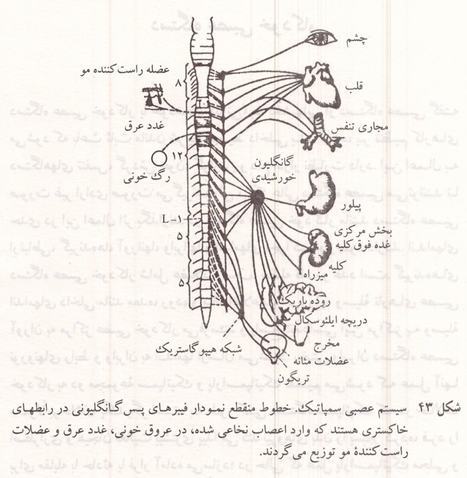 چشم
قلب
مجاری تنفس
عضله راست‌کننده مو
۸
غدد عرق
۱۲
رگ خونی
گانگلیون
خورشیدی
پیلور
L-۱
۵
بخش مرکزی
غده فوق کلیه
کلیه
میزراه
۵
روده باریک
دریچه ایلئوسکال
مخرج
عضلات مثانه
تریگون
شبکه هیپوگاستریک
شکل ۴۳ سیستم عصبی سمپاتیک. خطوط منقطع نمودار فیبرهای پس‌گانگلیونی در رابطهای
خاکستری هستند که وارد اعصاب نخاعی شده، در عروق خونی، غدد عرق و عضلات
راست‌کنندهٔ مو توزیع می‌گردند.